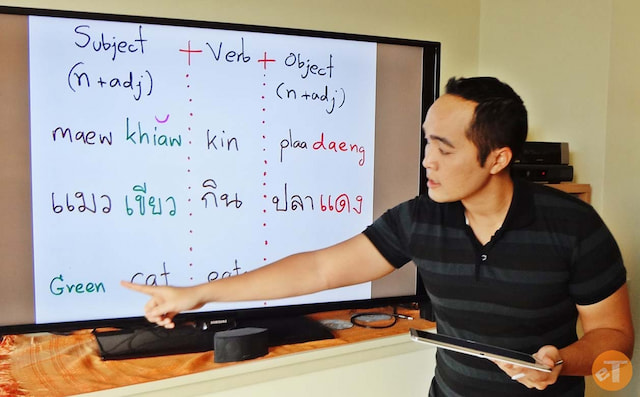 Subject + Verb + Object
(n + adj) (n + adj)
maew khiăw kin plaa daeng
แมว เขียว กิน ปลา แดง
Green cat
SAMSUNG
eT